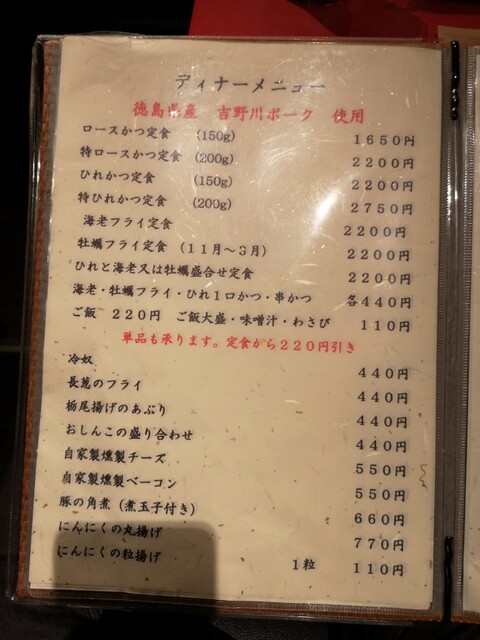 ディナーメニュー
徳島県産 吉野川ポーク 使用
ロースかつ定食 (150g) 1650円
特ロースかつ定食 (200g) 2200円
ひれかつ定食 (150g) 2200円
特ひれかつ定食 (200g) 2750円
海老フライ定食 2200円
牡蠣フライ定食 (11月～3月) 2200円
ひれと海老又は牡蠣盛合せ定食 2200円
海老・牡蠣フライ・ひれ1口かつ・串かつ 各440円
ご飯 220円 ご飯大盛・味噌汁・わさび 110円
単品も承ります。定食から220円引き
冷奴 440円
長葱のフライ 440円
栃尾揚げのあぶり 440円
おしんこの盛り合わせ 440円
自家製燻製チーズ 550円
自家製燻製ベーコン 550円
豚の角煮(煮玉子付き) 660円
にんにくの丸揚げ 770円
にんにくの粒揚げ 1粒 110円